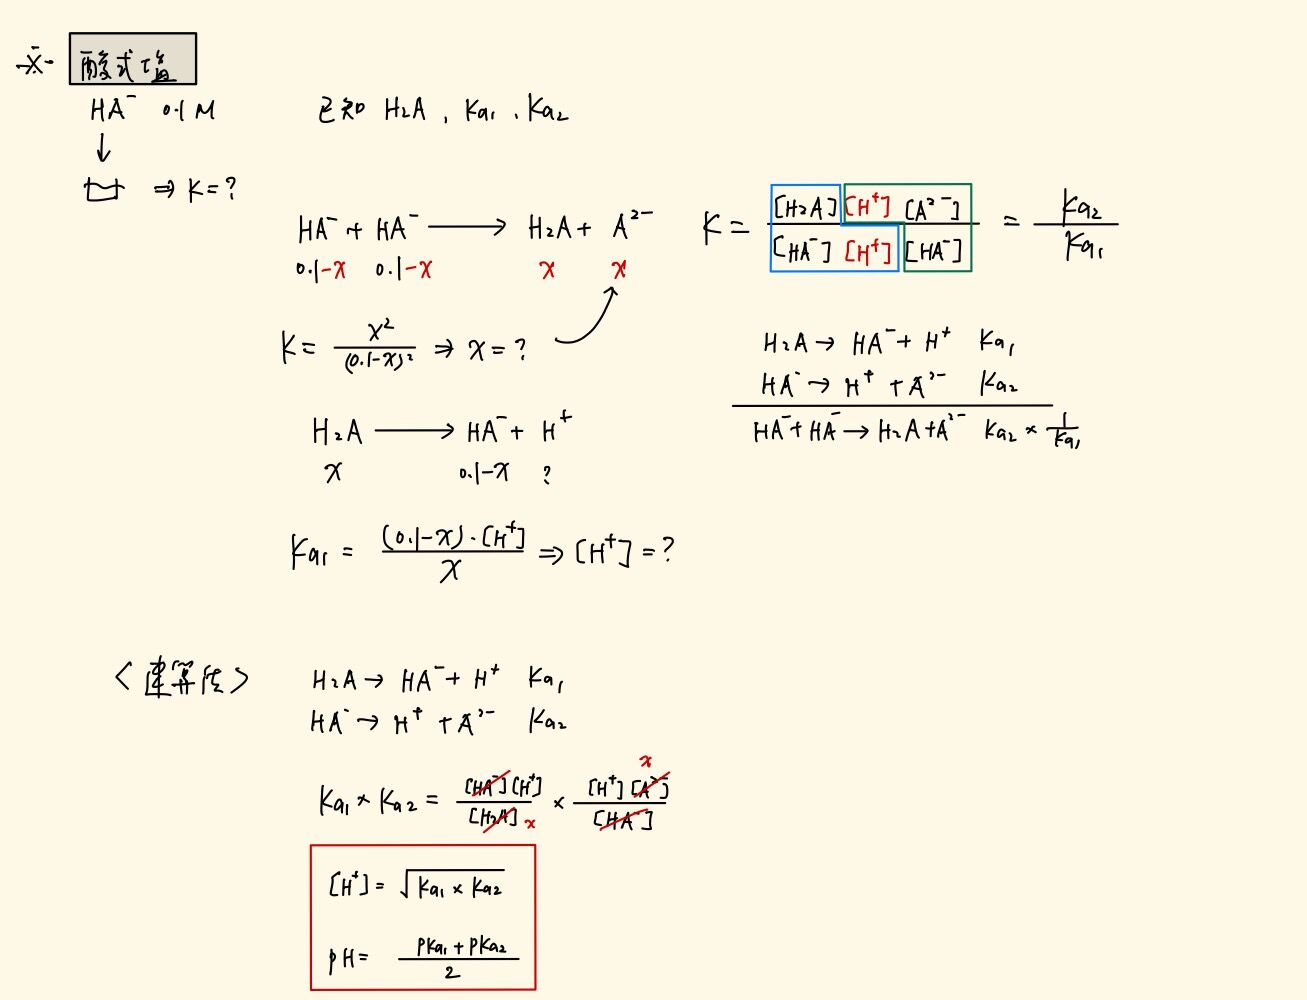 ※ 酸式塩
HA⁻ 0.1 M
已知 H₂A , Ka₁ , Ka₂
↓
⇒ K = ?
HA⁻ + HA⁻ ⟶ H₂A + A²⁻
0.1-x 0.1-x x x
K = [H₂A] [H⁺] [A²⁻] / [HA⁻] [H⁺] [HA⁻] = Ka₂ / Ka₁
K = x² / (0.1-x)² ⇒ x = ?
H₂A → HA⁻ + H⁺ Ka₁
HA⁻ → H⁺ + A²⁻ Ka₂
HA⁻ + HA⁻ → H₂A + A²⁻ Ka₂ × 1/Ka₁
H₂A ⟶ HA⁻ + H⁺
x 0.1-x ?
Ka₁ = (0.1-x)·[H⁺] / x ⇒ [H⁺] = ?
<速算法>
H₂A → HA⁻ + H⁺ Ka₁
HA⁻ → H⁺ + A²⁻ Ka₂
x
Ka₁ × Ka₂ = [HA⁻][H⁺] / [H₂A] × [H⁺][A²⁻] / [HA⁻]
x
[H⁺] = √(Ka₁ × Ka₂)
pH = (pKa₁ + pKa₂) / 2